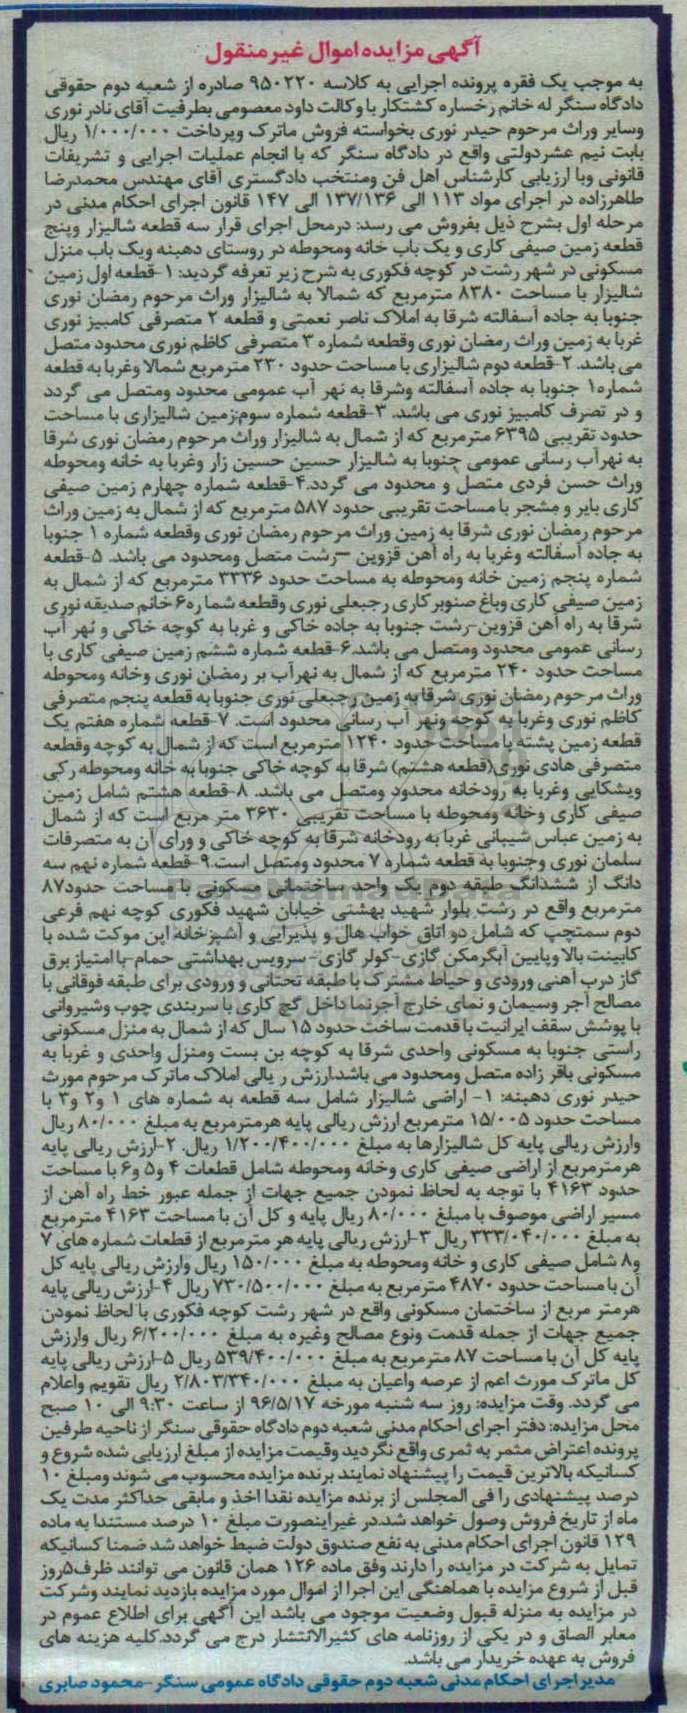 آگهی مزایده اموال غیر منقول
به موجب یک فقره پرونده اجرایی به کلاسه ۹۵۰۲۲۰ صادره از شعبه دوم حقوقی
دادگاه سنگر له خانم رخساره کشتکار با وکالت داود معصومی بطرفیت آقای نادر نوری
وسایر وراث مرحوم حیدر نوری بخواسته فروش ماترک وپرداخت ۱/۰۰۰/۰۰۰ ریال
بابت نیم عشر دولتی واقع در دادگاه سنگر که با انجام عملیات اجرایی و تشریفات
قانونی وبا ارزیابی کارشناس اهل فن ومنتخب دادگستری آقای مهندس محمدرضا
طاهرزاده در اجرای مواد ۱۱۳ الی ۱۳۷/۱۳۶ الی ۱۴۷ قانون اجرای احکام مدنی در
مرحله اول بشرح ذیل بفروش می رسد: درمحل اجرای قرار سه قطعه شالیزار وپنج
قطعه زمین صیفی کاری و یک باب خانه ومحوطه در روستای دهبنه ویک باب منزل
مسکونی در شهر رشت در کوچه فکوری به شرح زیر تعرفه گردید: ۱-قطعه اول زمین
شالیزار با مساحت ۸۳۸۰ مترمربع که شمالا به شالیزار وراث مرحوم رمضان نوری
جنوبا به جاده آسفالته شرقا به املاک ناصر نعمتی و قطعه ۲ متصرفی کامبیز نوری
غربا به زمین وراث رمضان نوری وقطعه شماره ۳ متصرفی کاظم نوری محدود متصل
می باشد. ۲-قطعه دوم شالیزاری با مساحت حدود ۲۳۰ مترمربع شمالا وغربا به قطعه
شماره۱ جنوبا به جاده آسفالته وشرقا به نهر آب عمومی محدود ومتصل می گردد
و در تصرف کامبیز نوری می باشد. ۳-قطعه شماره سوم:زمین شالیزاری با مساحت
حدود تقریبی ۶۳۹۵ مترمربع که از شمال به شالیزار وراث مرحوم رمضان نوری شرقا
به نهرآب رسانی عمومی جنوبا به شالیزار حسین حسین زار وغربا به خانه ومحوطه
وراث حسن فردی متصل و محدود می گردد.۴-قطعه شماره چهارم زمین صیفی
کاری بایر و مشجر با مساحت تقریبی حدود ۵۸۷ مترمربع که از شمال به زمین وراث
مرحوم رمضان نوری شرقا به زمین وراث مرحوم رمضان نوری وقطعه شماره ۱ جنوبا
به جاده آسفالته وغربا به راه آهن قزوین –رشت متصل ومحدود می باشد. ۵-قطعه
شماره پنجم زمین خانه ومحوطه به مساحت حدود ۳۳۳۶ مترمربع که از شمال به
زمین صیفی کاری وباغ صنوبر کاری رجبعلی نوری وقطعه شماره۶ خانم صدیقه نوری
شرقا به راه آهن قزوین-رشت جنوبا به جاده خاکی و غربا به کوچه خاکی و نهر آب
رسانی عمومی محدود ومتصل می باشد.۶-قطعه شماره ششم زمین صیفی کاری با
مساحت حدود ۲۴۰ مترمربع که از شمال به نهرآب بر رمضان نوری وخانه ومحوطه
وراث مرحوم رمضان نوری شرقا به زمین رجبعلی نوری جنوبا به قطعه پنجم متصرفی
کاظم نوری وغربا به کوچه ونهر آب رسانی محدود است. ۷-قطعه شماره هفتم یک
قطعه زمین پشته با مساحت حدود ۱۲۴۰ مترمربع است که از شمال به کوچه وقطعه
متصرفی هادی نوری(قطعه هشتم) شرقا به کوچه خاکی جنوبا به خانه ومحوطه رکی
ویشکایی وغربا به رودخانه محدود ومتصل می باشد. ۸-قطعه هشتم شامل زمین
صیفی کاری وخانه ومحوطه با مساحت تقریبی ۳۶۳۰ متر مربع است که از شمال
به زمین عباس شیبانی غربا به رودخانه شرقا به کوچه خاکی و ورای آن به متصرفات
سلمان نوری وجنوبا به قطعه شماره ۷ محدود ومتصل است.۹-قطعه شماره نهم سه
دانگ از ششدانگ طبقه دوم یک واحد ساختمانی مسکونی با مساحت حدود۸۷
مترمربع واقع در رشت بلوار شهید بهشتی خیابان شهید فکوری کوچه نهم فرعی
دوم سمتچپ که شامل دو اتاق خواب هال و پذیرایی و آشپزخانه اپن موکت شده با
کابینت بالا وپایین آبگرمکن گازی-کولر گازی-سرویس بهداشتی حمام-با امتیاز برق
گاز درب آهنی ورودی و حیاط مشترک با طبقه تحتانی و ورودی برای طبقه فوقانی با
مصالح آجر وسیمان و نمای خارج آجرنما داخل گچ کاری با سربندی چوب وشیروانی
با پوشش سقف ایرانیت با قدمت ساخت حدود ۱۵ سال که از شمال به منزل مسکونی
راستی جنوبا به مسکونی واحدی شرقا به کوچه بن بست ومنزل واحدی و غربا به
مسکونی باقر زاده متصل ومحدود می باشد.ارزش ریالی املاک ماترک مرحوم مورث
حیدر نوری دهبنه: ۱- اراضی شالیزار شامل سه قطعه به شماره های ۱ و۲ و۳ با
مساحت حدود ۱۵/۰۰۵ مترمربع ارزش ریالی پایه هرمترمربع به مبلغ ۸۰/۰۰۰ ریال
وارزش ریالی پایه کل شالیزارها به مبلغ ۱/۲۰۰/۴۰۰/۰۰۰ ریال. ۲-ارزش ریالی پایه
هرمترمربع از اراضی صیفی کاری وخانه ومحوطه شامل قطعات ۴ و۵ و۶ با مساحت
حدود ۴۱۶۳ با توجه به لحاظ نمودن جمیع جهات از جمله عبور خط راه آهن از
مسیر اراضی موصوف با مبلغ ۸۰/۰۰۰ ریال پایه و کل آن با مساحت ۴۱۶۳ مترمربع
به مبلغ ۳۳۳/۰۴۰/۰۰۰ ریال ۳-ارزش ریالی پایه هر مترمربع از قطعات شماره های ۷
و۸ شامل صیفی کاری و خانه ومحوطه به مبلغ ۱۵۰/۰۰۰ ریال وارزش ریالی پایه کل
آن با مساحت حدود ۴۸۷۰ مترمربع به مبلغ ۷۳۰/۵۰۰/۰۰۰ ریال ۴-ارزش ریالی پایه
هرمتر مربع از ساختمان مسکونی واقع در شهر رشت کوچه فکوری با لحاظ نمودن
جمیع جهات از جمله قدمت ونوع مصالح وغیره به مبلغ ۶/۲۰۰/۰۰۰ ریال وارزش
پایه کل آن با مساحت ۸۷ مترمربع به مبلغ ۵۳۹/۴۰۰/۰۰۰ ریال ۵-ارزش ریالی پایه
کل ماترک مورث اعم از عرصه واعیان به مبلغ ۲/۸۰۳/۳۴۰/۰۰۰ ریال تقویم واعلام
می گردد. وقت مزایده: روز سه شنبه مورخه ۹۶/۵/۱۷ از ساعت ۹:۳۰ الی ۱۰ صبح
محل مزایده: دفتر اجرای احکام مدنی شعبه دوم دادگاه حقوقی سنگر از ناحیه طرفین
پرونده اعتراض مثمر به ثمری واقع نگردید وقیمت مزایده از مبلغ ارزیابی شده شروع و
کسانیکه بالاترین قیمت را پیشنهاد نمایند برنده مزایده محسوب می شوند ومبلغ ۱۰
درصد پیشنهادی را فی المجلس از برنده مزایده نقدا اخذ و مابقی حداکثر مدت یک
ماه از تاریخ فروش وصول خواهد شد.در غیراینصورت مبلغ ۱۰ درصد مستندا به ماده
۱۲۹ قانون اجرای احکام مدنی به نفع صندوق دولت ضبط خواهد شد ضمنا کسانیکه
تمایل به شرکت در مزایده را دارند وفق ماده ۱۲۶ همان قانون می توانند ظرف۵روز
قبل از شروع مزایده با هماهنگی این اجرا از اموال مورد مزایده بازدید نمایند وشرکت
در مزایده به منزله قبول وضعیت موجود می باشد این آگهی برای اطلاع عموم در
معابر الصاق و در یکی از روزنامه های کثیرالانتشار درج می گردد.کلیه هزینه های
فروش به عهده خریدار می باشد.
مدیر اجرای احکام مدنی شعبه دوم حقوقی دادگاه عمومی سنگر -محمود صابری